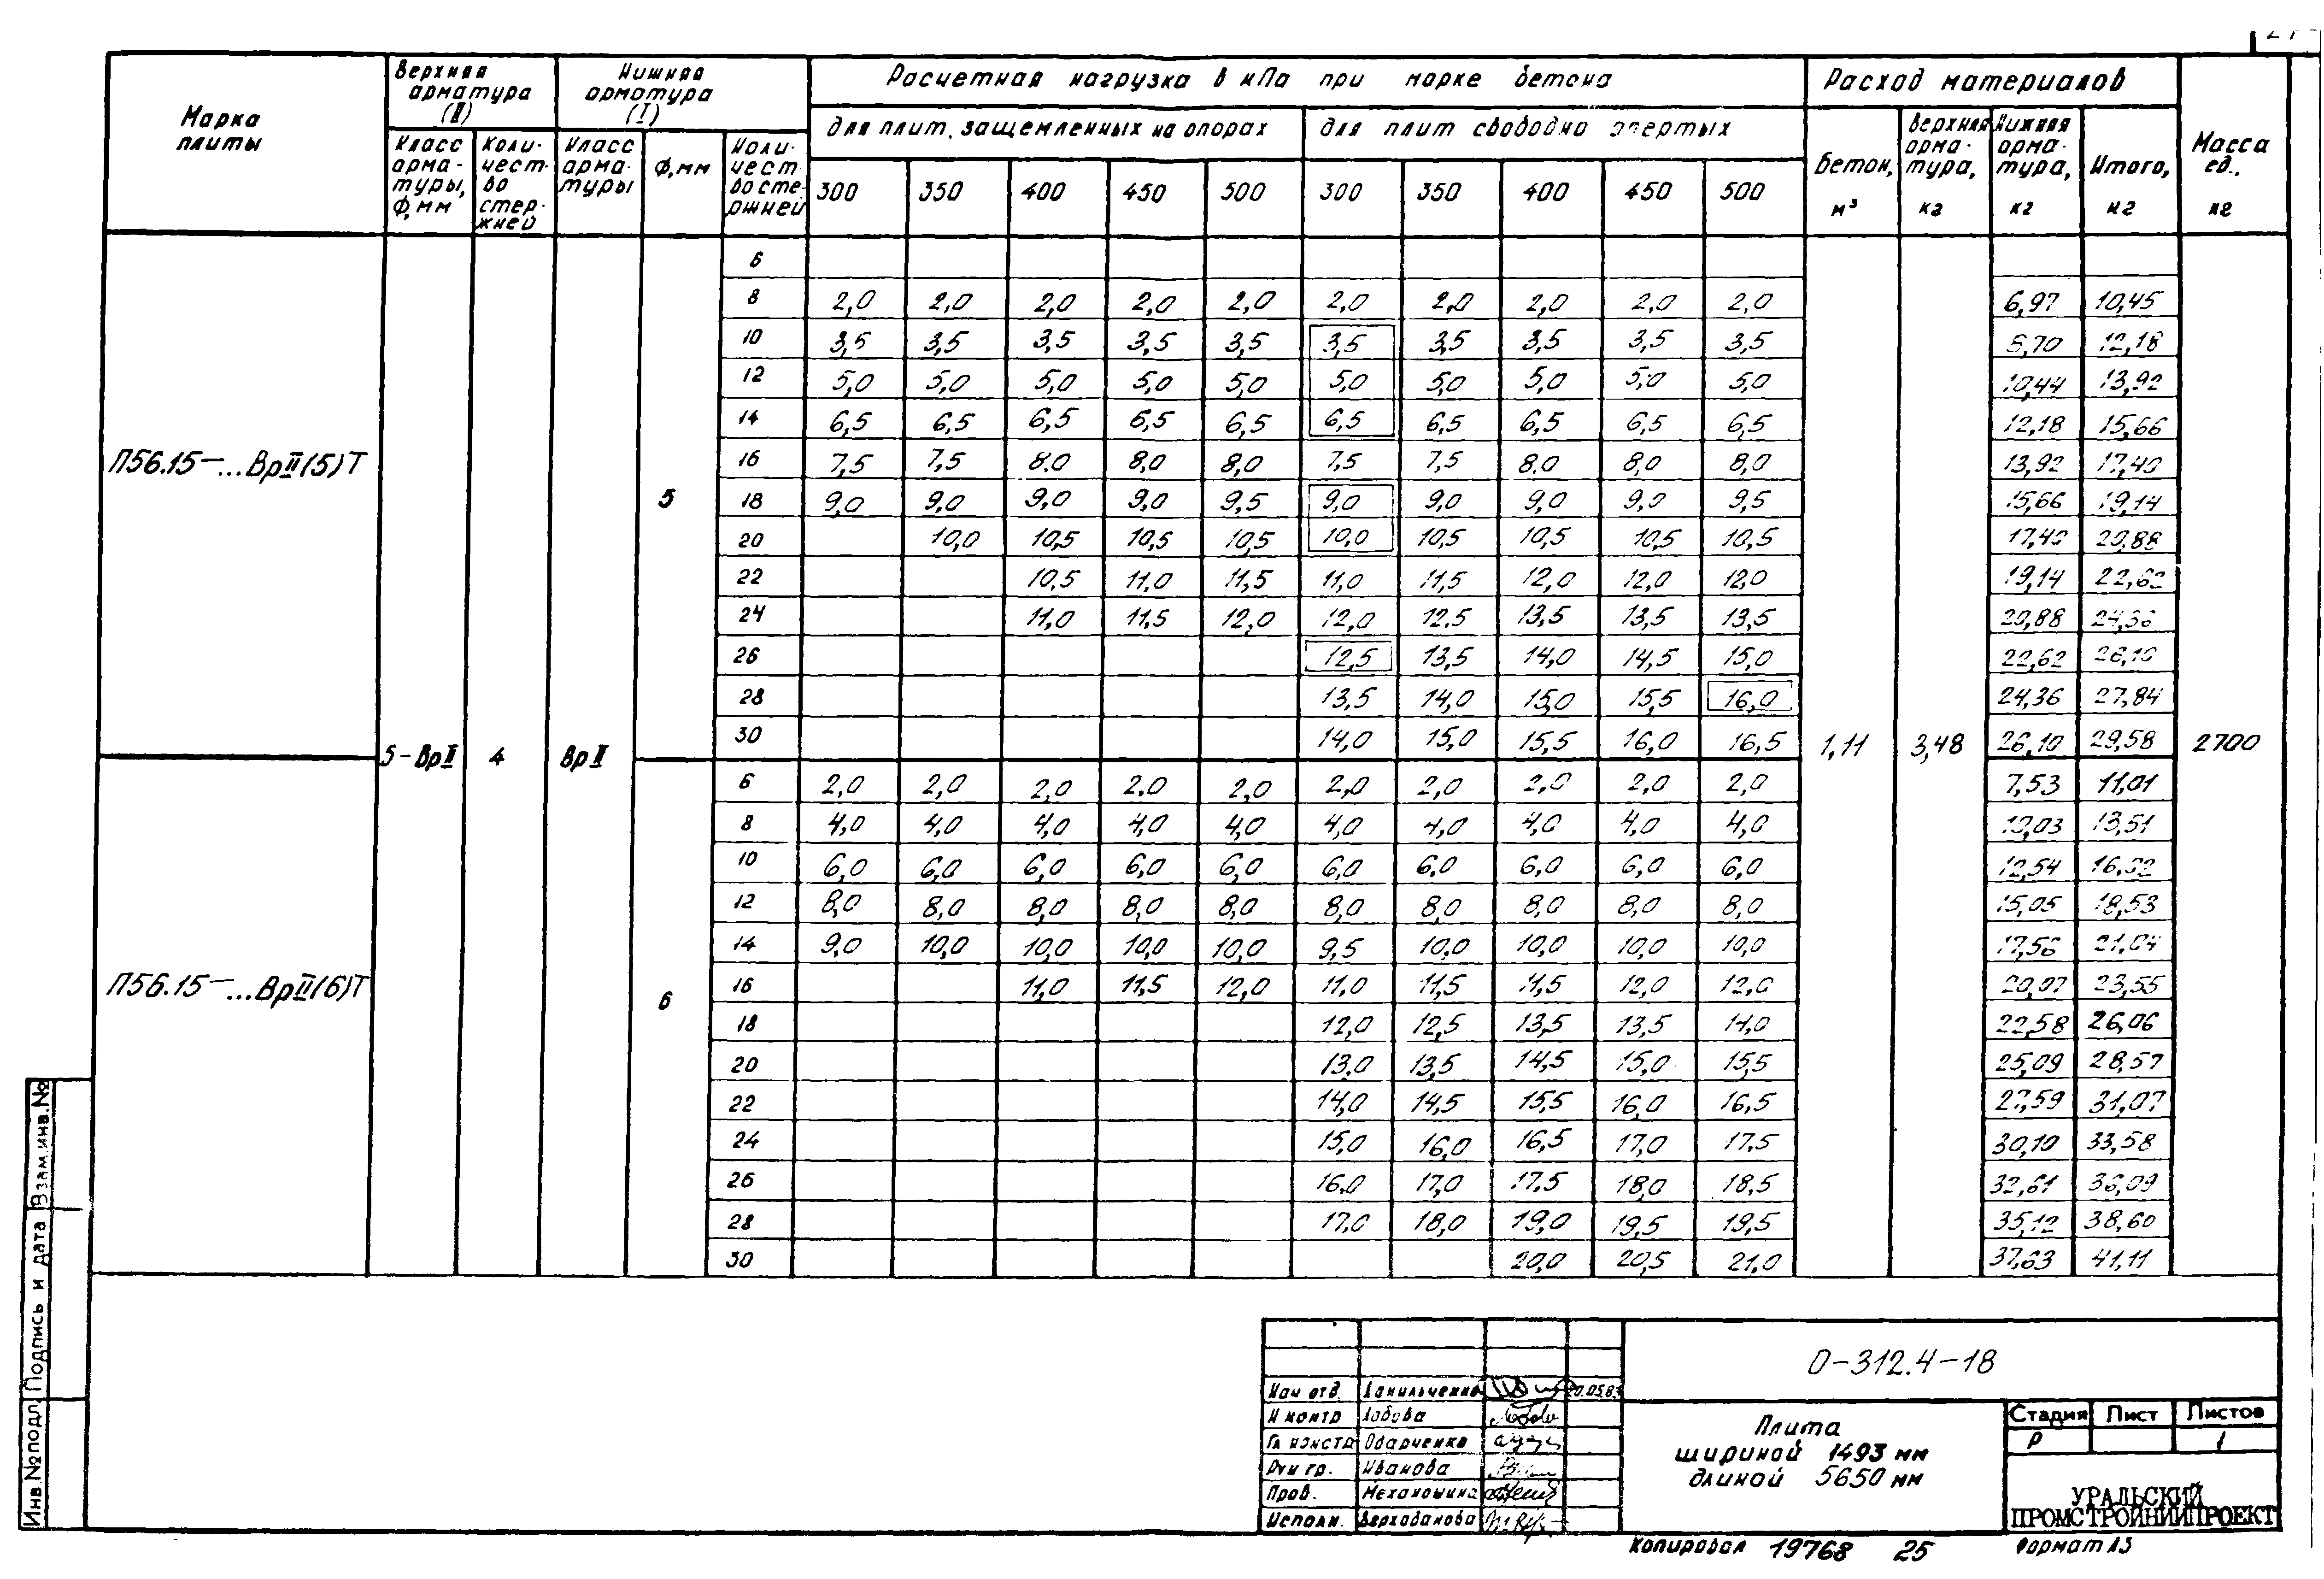 Марка плиты
Верхняя арматура (II)
Класс арматуры, Ф, мм
Количество стержней
Нижняя арматура (I)
Класс арматуры
Ф, мм
Количество стержней
Расчетная нагрузка в кПа при марке бетона
для плит, защемленных на опорах
для плит свободно опертых
300 350 400 450 500 300 350 400 450 500
Расход материалов
Бетон, м³
Верхняя арматура, кг
Нижняя арматура, кг
Итого, кг
Масса ед., кг
П56.15-...ВрII(5)Т
5
6
8 2,0 2,0 2,0 2,0 2,0 2,0 2,0 2,0 2,0 2,0 6,97 10,45
10 3,5 3,5 3,5 3,5 3,5 3,5 3,5 3,5 3,5 3,5 8,70 12,18
12 5,0 5,0 5,0 5,0 5,0 5,0 5,0 5,0 5,0 5,0 10,44 13,92
14 6,5 6,5 6,5 6,5 6,5 6,5 6,5 6,5 6,5 6,5 12,18 15,66
16 7,5 7,5 8,0 8,0 8,0 7,5 7,5 8,0 8,0 8,0 13,92 17,40
18 9,0 9,0 9,0 9,0 9,5 9,0 9,0 9,0 9,0 9,5 15,66 19,14
20 10,0 10,5 10,5 10,5 10,0 10,5 10,5 10,5 10,5 17,40 20,88
22 10,5 11,0 11,5 11,0 11,5 12,0 12,0 12,0 19,14 22,62
24 11,0 11,5 12,0 12,0 12,5 13,5 13,5 13,5 20,88 24,36
26 12,5 13,5 14,0 14,5 15,0 22,62 26,10
28 13,5 14,0 15,0 15,5 16,0 24,36 27,84
30 14,0 15,0 15,5 16,0 16,5 26,10 29,58
5-ВрII 4 ВрII 1,11 3,48 2700
П56.15-...ВрII(6)Т
6
6 2,0 2,0 2,0 2,0 2,0 2,0 2,0 2,0 2,0 2,0 7,53 11,01
8 4,0 4,0 4,0 4,0 4,0 4,0 4,0 4,0 4,0 4,0 10,03 13,51
10 6,0 6,0 6,0 6,0 6,0 6,0 6,0 6,0 6,0 6,0 12,54 16,02
12 8,0 8,0 8,0 8,0 8,0 8,0 8,0 8,0 8,0 8,0 15,05 18,53
14 9,0 10,0 10,0 10,0 10,0 9,5 10,0 10,0 10,0 10,0 17,56 21,04
16 11,0 11,5 12,0 11,0 11,5 11,5 12,0 12,0 20,07 23,55
18 12,0 12,5 13,5 13,5 14,0 22,58 26,06
20 13,0 13,5 14,5 15,0 15,5 25,09 28,57
22 14,0 14,5 15,5 16,0 16,5 27,59 31,07
24 15,0 16,0 16,5 17,0 17,5 30,10 33,58
26 16,0 17,0 17,5 18,0 18,5 32,61 36,09
28 17,0 18,0 19,0 19,5 19,5 35,12 38,60
30 20,0 20,5 21,0 37,63 41,11
Инв.№подл Подпись и дата Взам.инв.№
О-312.4-18
Нач отд. Данильченко
Н контр Лобова
Гл констр Одарченко
Рук гр. Иванова
Пров. Механошина
Исполн. Верходанова
Плита
шириной 1493 мм
длиной 5650 мм
Стадия Лист Листов
Р 1
УРАЛЬСКИЙ
ПРОМСТРОЙНИИПРОЕКТ
Копировал 19768 25 Формат А3